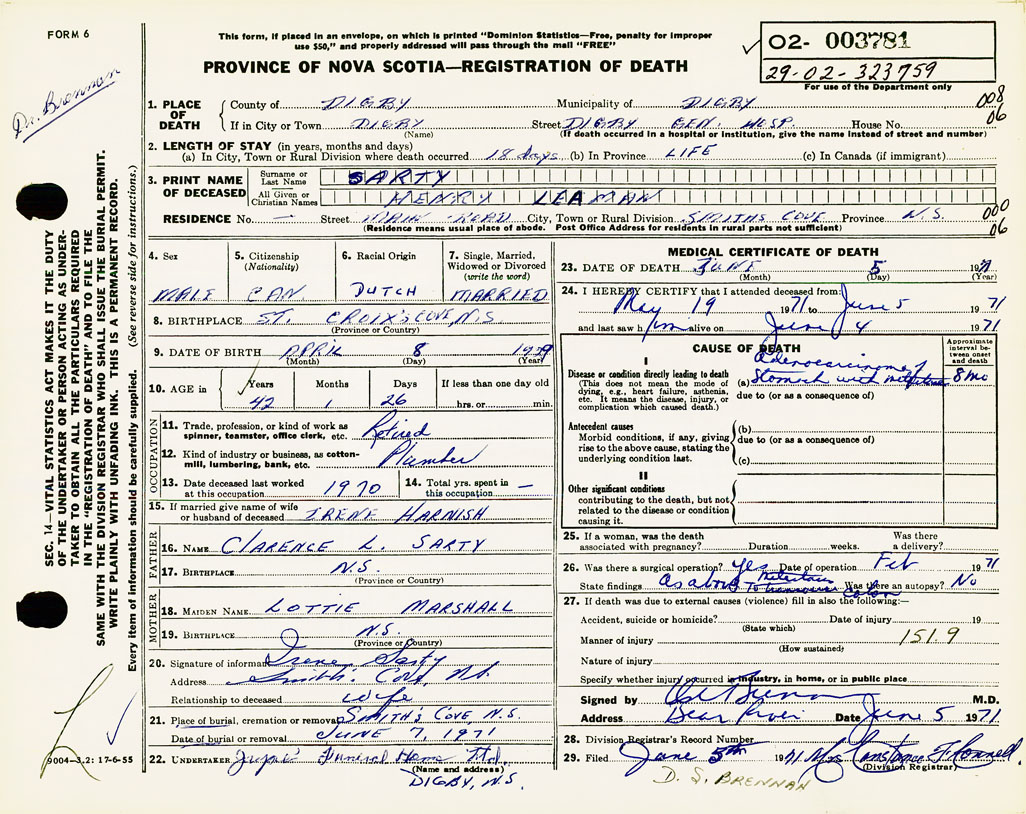 FORM 6
This form, if placed in an envelope, on which is printed "Dominion Statistics—Free, penalty for improper
use $50," and properly addressed will pass through the mail "FREE"
PROVINCE OF NOVA SCOTIA—REGISTRATION OF DEATH
02- 003781
29-02-323759
For use of the Department only
Dr. Brennan
008
06
1. PLACE OF DEATH
County of DIGBY Municipality of DIGBY
If in City or Town DIGBY Street DIGBY GEN. HOSP. House No.
(Name) (If death occurred in a hospital or institution, give the name instead of street and number)
2. LENGTH OF STAY (in years, months and days)
(a) In City, Town or Rural Division where death occurred 18 days (b) In Province LIFE (c) In Canada (if immigrant)
3. PRINT NAME OF DECEASED
Surname or Last Name SARTY
All Given or Christian Names HENRY LEAMAN
RESIDENCE No. — Street MAIN ROAD City, Town or Rural Division SMITHS COVE Province N.S.
(Residence means usual place of abode. Post Office Address for residents in rural parts not sufficient)
000
06
4. Sex MALE
5. Citizenship (Nationality) CAN.
6. Racial Origin DUTCH
7. Single, Married, Widowed or Divorced (write the word) MARRIED
8. BIRTHPLACE ST. CROIX'S COVE, N.S.
(Province or Country)
9. DATE OF BIRTH APRIL 8 1929
(Month) (Day) (Year)
10. AGE in Years Months Days If less than one day old
42 1 26 hrs. or min.
OCCUPATION
11. Trade, profession, or kind of work as spinner, teamster, office clerk, etc. Retired
12. Kind of industry or business, as cotton-mill, lumbering, bank, etc. Plumber
13. Date deceased last worked at this occupation 1970
14. Total yrs. spent in this occupation —
15. If married give name of wife or husband of deceased IRENE HARNISH
FATHER
16. NAME CLARENCE L. SARTY
17. BIRTHPLACE N.S.
(Province or Country)
MOTHER
18. MAIDEN NAME LOTTIE MARSHALL
19. BIRTHPLACE N.S.
(Province or Country)
20. Signature of informant Irene Sarty
Address Smith's Cove, N.S.
Relationship to deceased wife
21. Place of burial, cremation or removal SMITH'S COVE, N.S.
Date of burial or removal JUNE 7, 1971
22. UNDERTAKER Funeral Home Ltd.
(Name and address)
DIGBY, N.S.
MEDICAL CERTIFICATE OF DEATH
23. DATE OF DEATH JUNE 5 1971
(Month) (Day) (Year)
24. I HEREBY CERTIFY that I attended deceased from:
May 19 1971 to June 5 1971
and last saw him alive on June 4 1971
CAUSE OF DEATH
Approximate interval between onset and death
I
Disease or condition directly leading to death
(This does not mean the mode of dying, e.g., heart failure, asthenia, etc. It means the disease, injury, or complication which caused death.)
(a) Adenocarcinoma of
Stomach with 8 mo
due to (or as a consequence of)
Antecedent causes
Morbid conditions, if any, giving rise to the above cause, stating the underlying condition last.
(b)
due to (or as a consequence of)
(c)
II
Other significant conditions
contributing to the death, but not related to the disease or condition causing it.
25. If a woman, was the death associated with pregnancy? Duration weeks. Was there a delivery?
26. Was there a surgical operation? yes Date of operation Feb 1971
State findings As above to transverse colon Was there an autopsy? No
27. If death was due to external causes (violence) fill in also the following:—
Accident, suicide or homicide? Date of injury 19
(State which)
Manner of injury 151.9
(How sustained)
Nature of injury
Specify whether injury occurred in industry, in home, or in public place
Signed by Brennan M.D.
Address Bear River Date June 5 1971
28. Division Registrar's Record Number
29. Filed June 5th 1971 Mrs Constance
(Division Registrar)
D. S. BRENNAN
SEC. 14—VITAL STATISTICS ACT MAKES IT THE DUTY
OF THE UNDERTAKER OR PERSON ACTING AS UNDER-
TAKER TO OBTAIN ALL THE PARTICULARS REQUIRED
IN THE "REGISTRATION OF DEATH" AND TO FILE THE
SAME WITH THE DIVISION REGISTRAR WHO SHALL ISSUE THE BURIAL PERMIT.
WRITE PLAINLY WITH UNFADING INK. THIS IS A PERMANENT RECORD.
Every item of information should be carefully supplied. (See reverse side for instructions.)
9004—3,2: 17-6-55